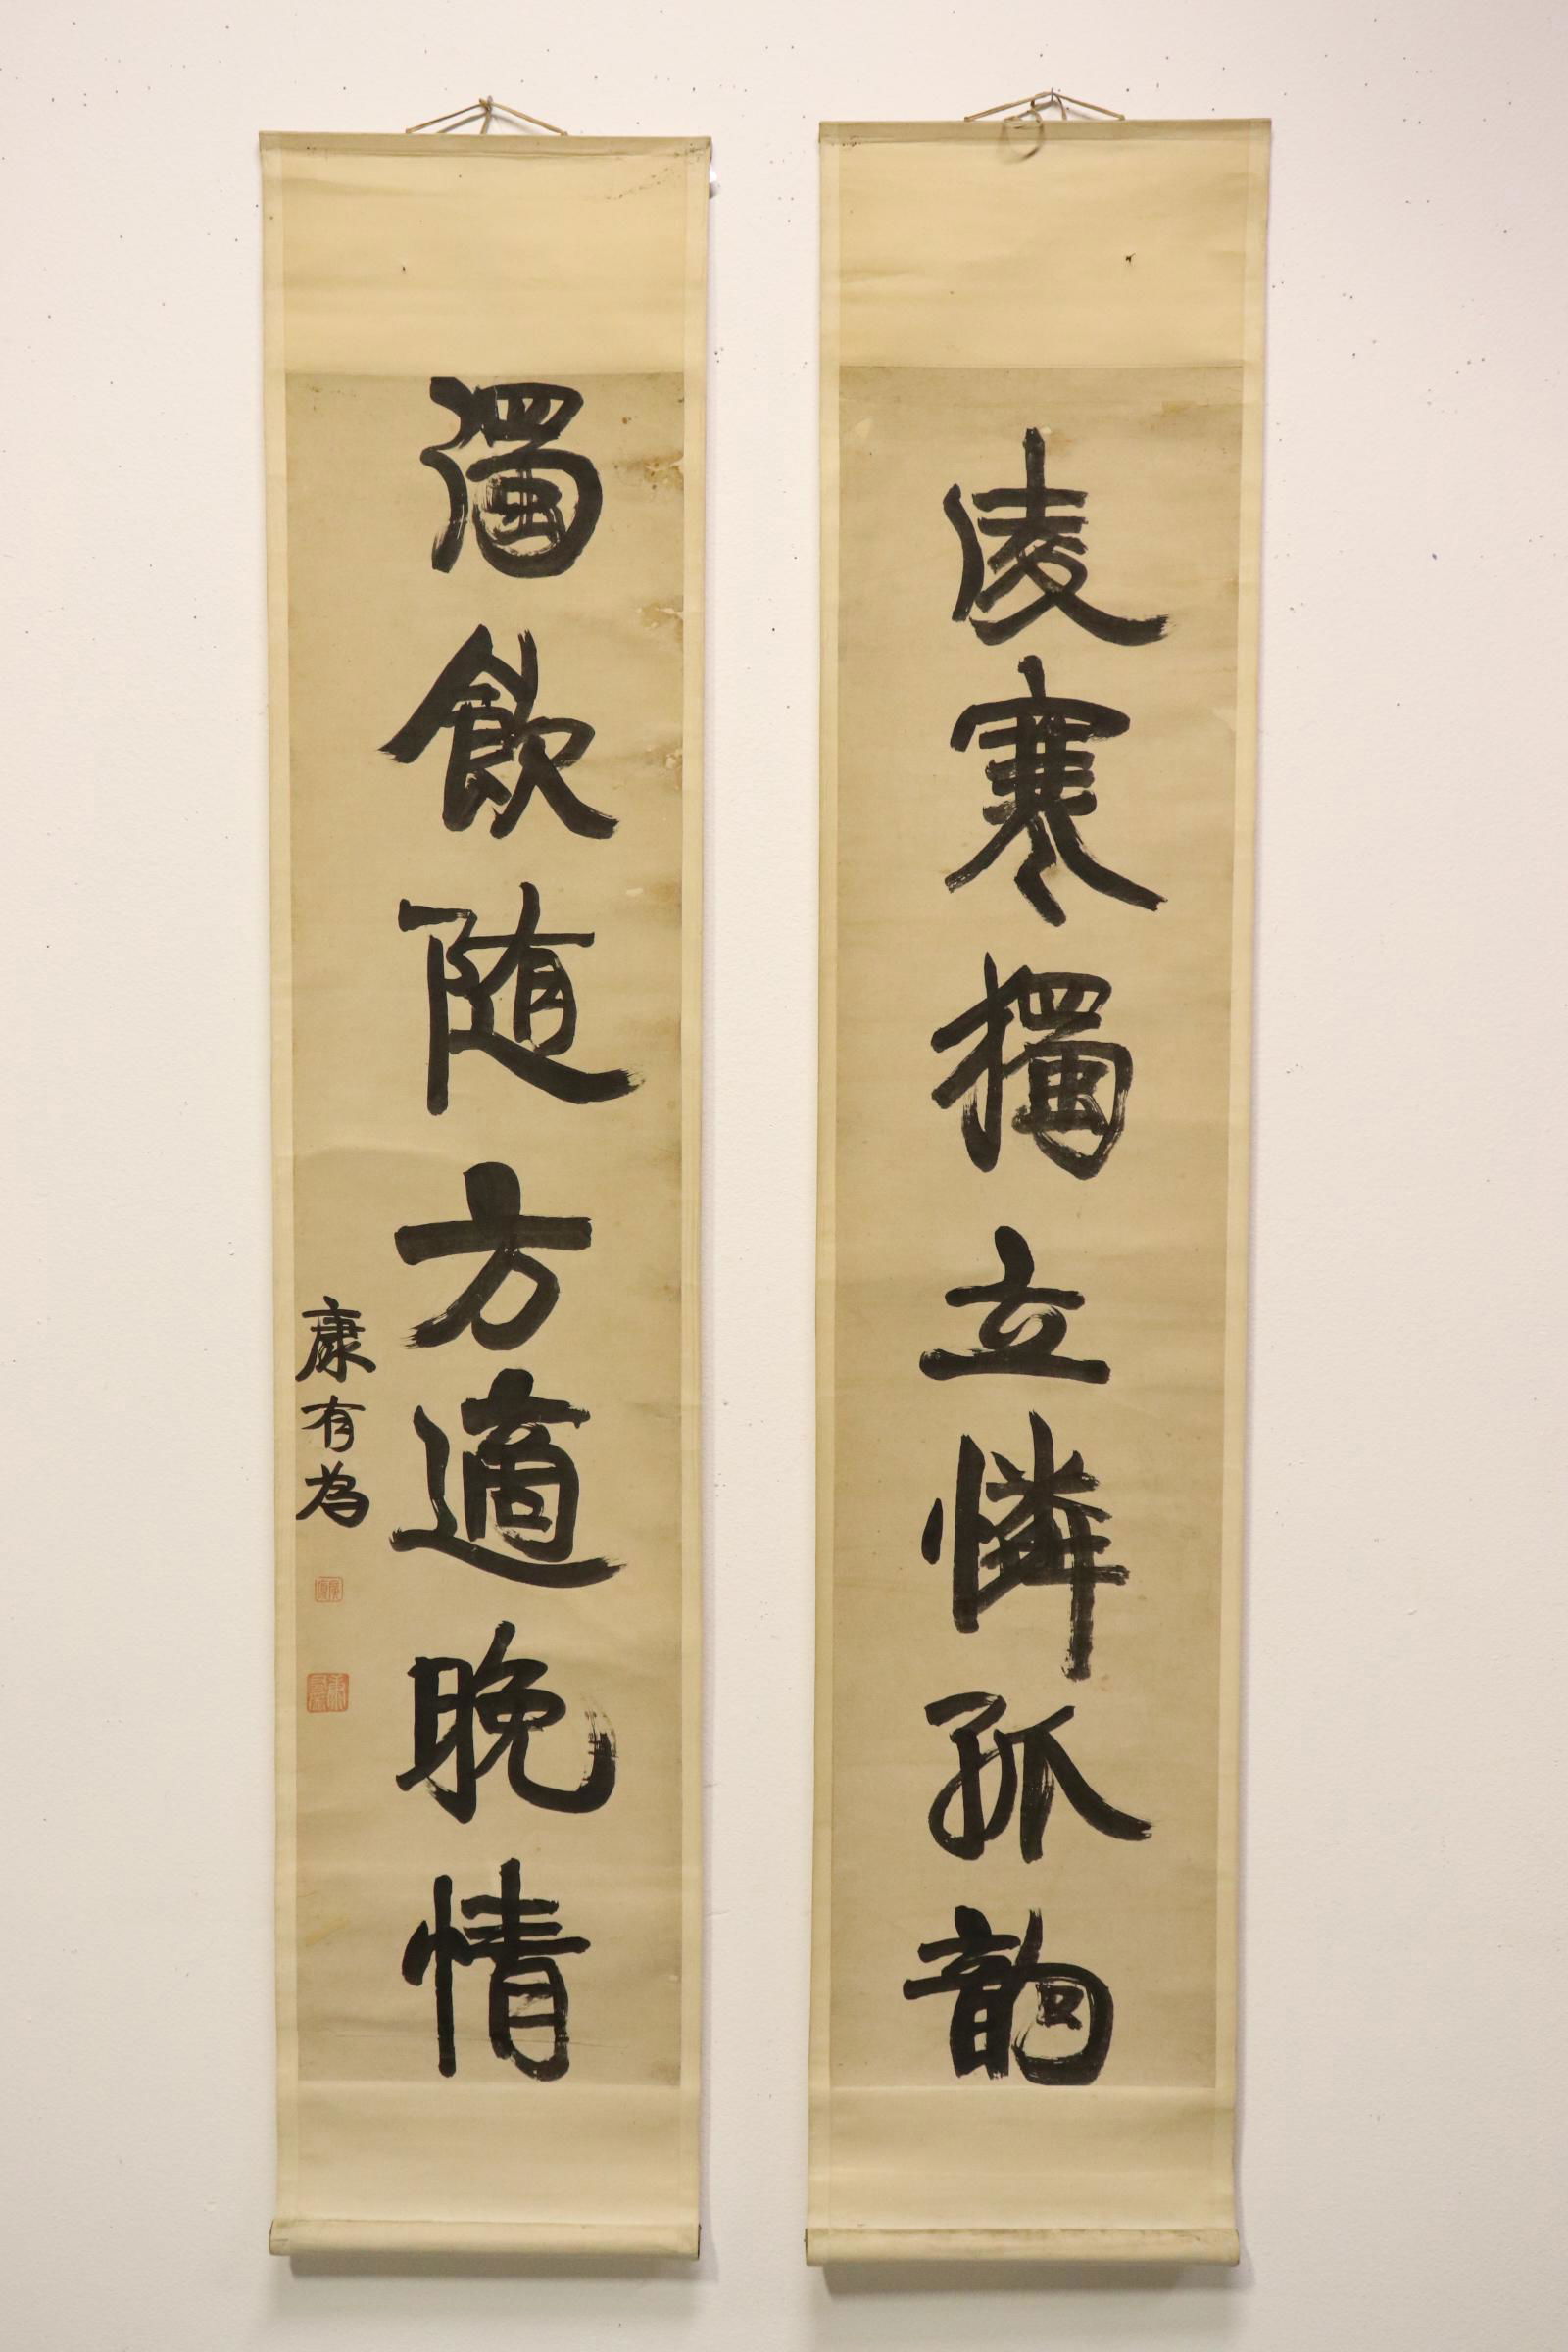 凌寒獨立憐孤韵
濁飲随方適晚情
康有為